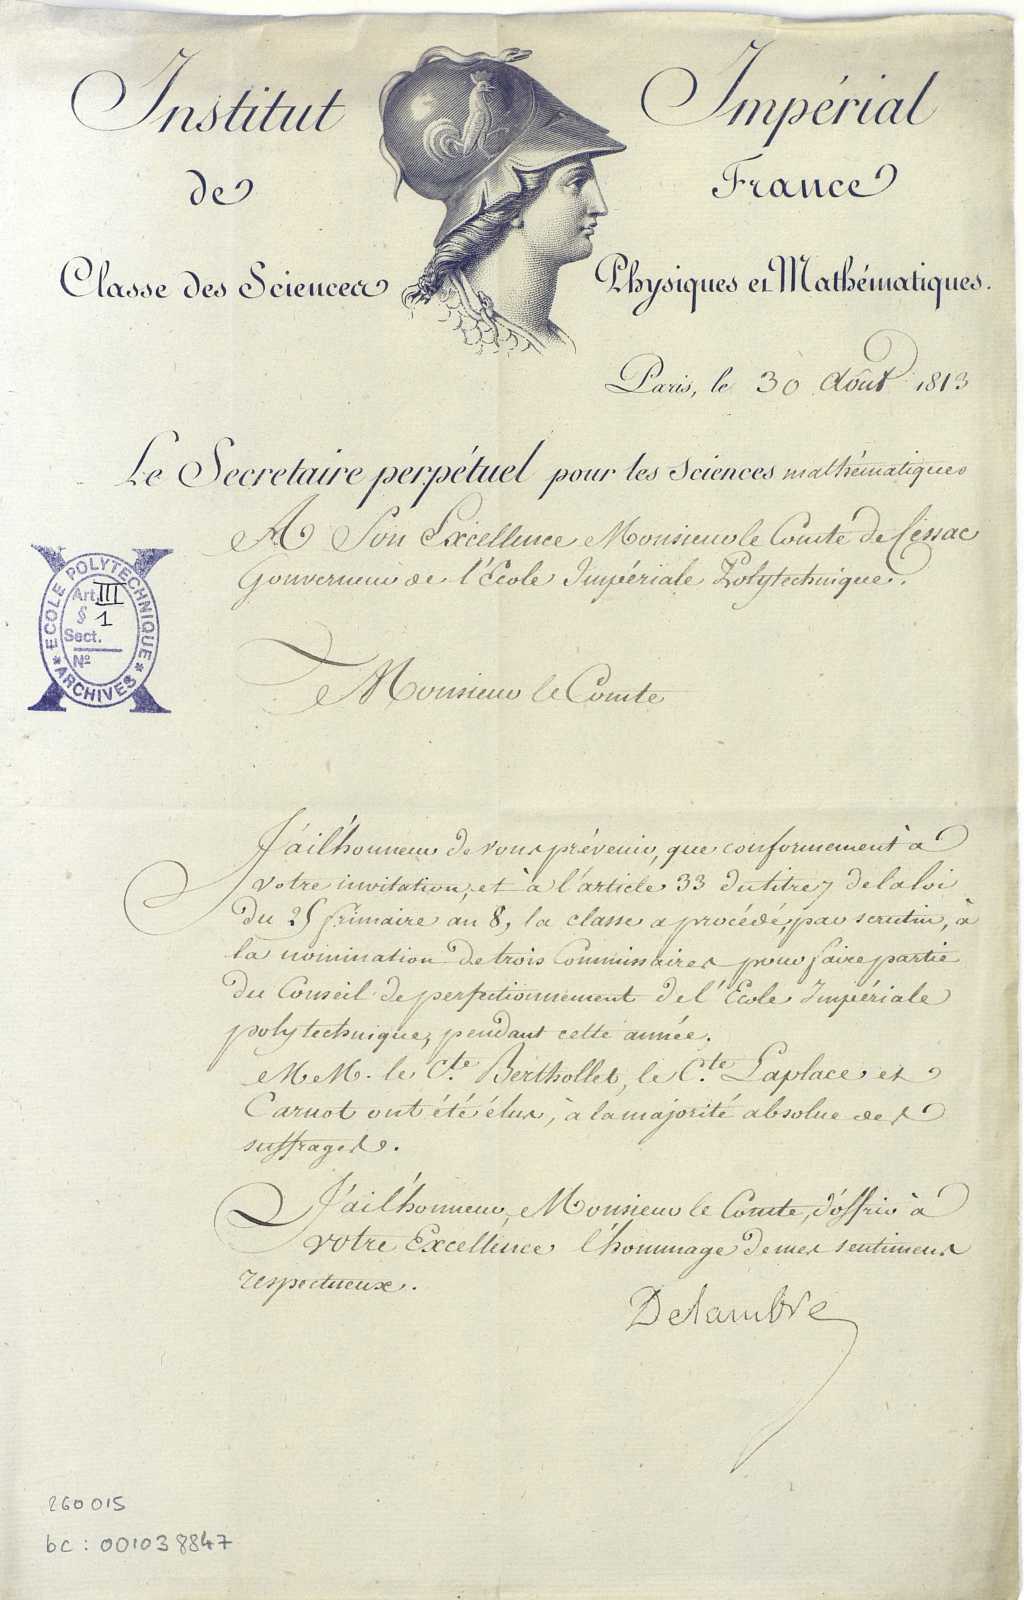 Institut Impérial
de France
Classe des Sciences Physiques et Mathématiques.
Paris, le 30 Août 1813
Le Secretaire perpétuel pour les Sciences mathématiques
A Son Excellence Monsieur le Comte de Cessac
Gouverneur de l'Ecole Impériale Polytechnique.
ECOLE POLYTECHNIQUE
ARCHIVES
Art. III
§ 1
Sect.
No
Monsieur le Comte
J'ai l'honneur de vous prévenir, que conformement à
votre invitation, et à l'article 33 du titre 7 de la loi
du 25 frimaire an 8, la classe a procédé, par scrutin, à
la nomination de trois Commissaires pour faire partie
du Conseil de perfectionnement de l'Ecole Impériale
polytechnique, pendant cette année.
MM. le Cte. Berthollet, le Cte. Laplace et
Carnot ont été élus, à la majorité absolue des
suffrages.
J'ai l'honneur, Monsieur le Comte, d'offrir à
votre Excellence l'hommage de mes sentimens
respectueux.
Delambre
260 015
bc : 001038847